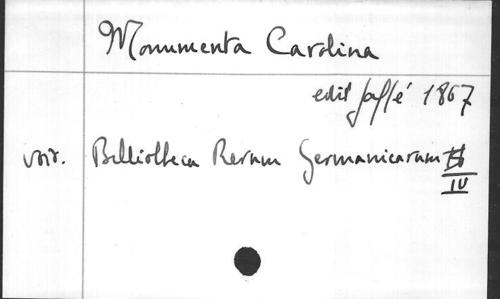 Monumenta Carolina
edit Jaffé 1867
voir. Bibliotheca Rerum Germanicarum
IV